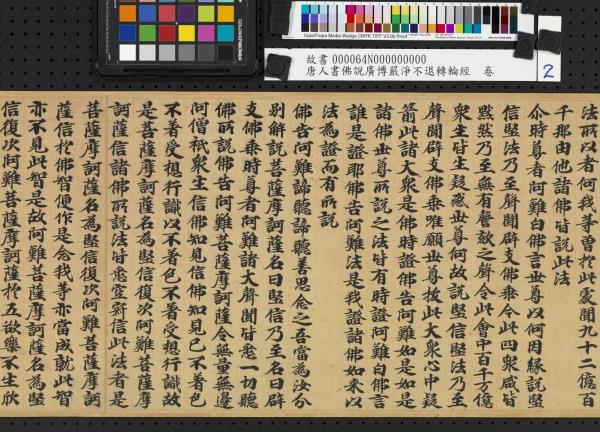 UgraFogra Media Wedge CMYK TIFF V3.0b Proof
故書 000064N000000000
唐人書佛說廣博嚴淨不退轉輪經 卷
2
法所以者何我等曾於此處聞九十二億百
千那由他諸佛皆說此法
尒時尊者阿難白佛言世尊以何因緣說堅
信堅法乃至聲聞辟支佛乗今此四衆咸皆
默然乃至無有謦欬之聲今此會中百千万億
衆生皆生疑惑世尊何故說堅信堅法乃至
聲聞辟支佛乗唯願世尊拔此大衆心中疑
箭此諸大衆是佛證時佛告阿難如是如是
諸佛世尊所說之法皆有時證阿難白佛言
誰是證耶佛告阿難法是我證諸佛如來以
法為證而有所說
佛告阿難諦聽諦聽善思念之吾當為汝分
別解說菩薩摩訶薩名曰堅信乃至名曰辟
支佛乗時尊者阿難諸大聲聞皆悉一切聽
佛所說佛告阿難菩薩摩訶薩令無量無邊
阿僧祇衆生信佛知見信佛知見已不著色
不著受想行識以不著色不著受想行識故
是菩薩摩訶薩名為堅信復次阿難菩薩摩
訶薩信諸佛所說法皆悉空寂信此法者是
菩薩摩訶薩名為堅信復次阿難菩薩摩訶
薩信於佛智便作是念我等亦當成就此智
亦不見此智是故阿難菩薩摩訶薩名為堅
信復次阿難菩薩摩訶薩於五欲樂不生欣